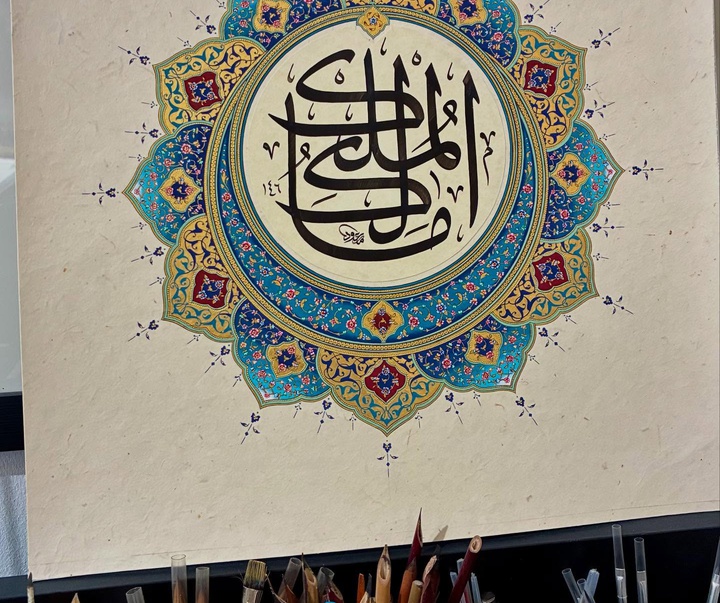 مالك الملك
١٤٦